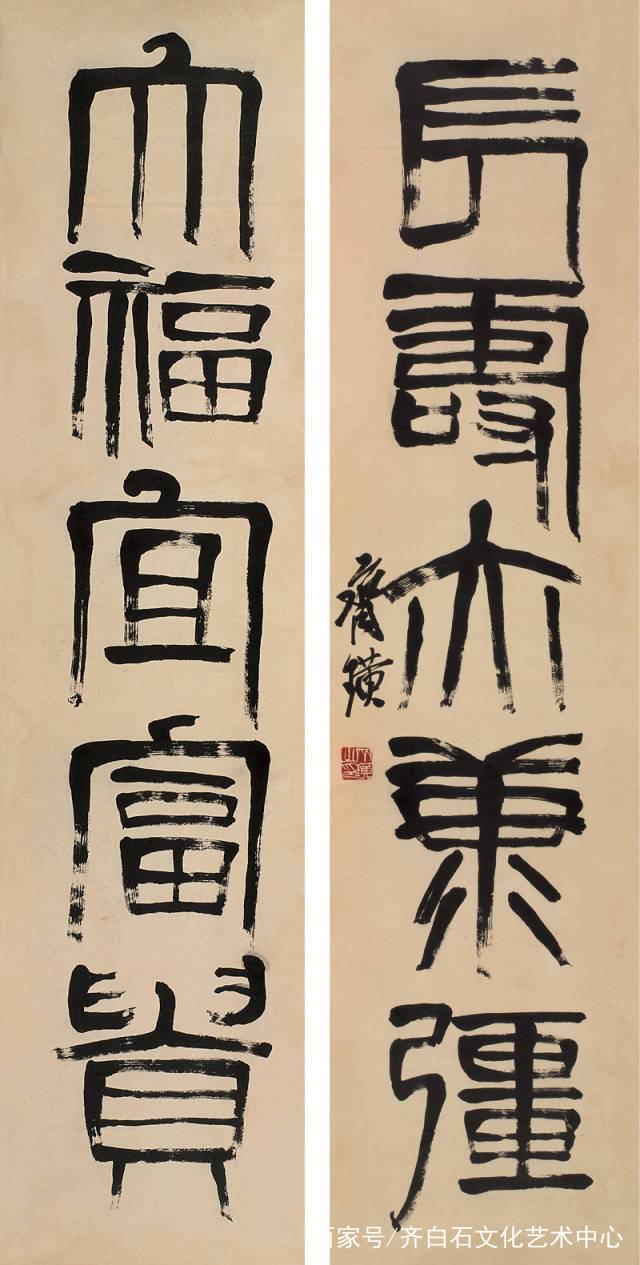 長壽亦康彊
齊璜
大福宜富貴
百家号/齐白石文化艺术中心